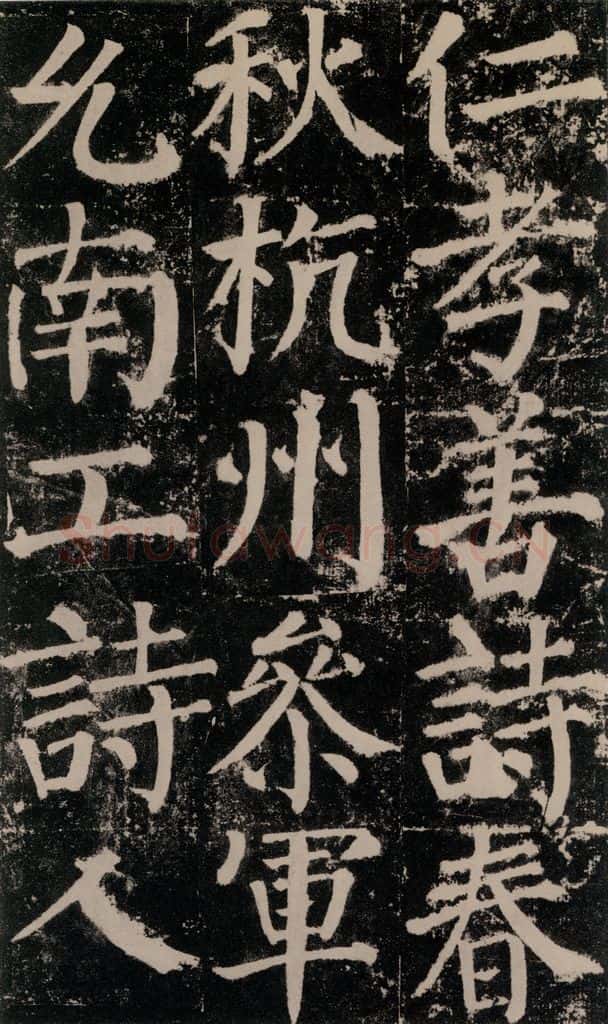 仁孝善詩春
秋杭州叅軍
允南工詩人
Shufawang.CN